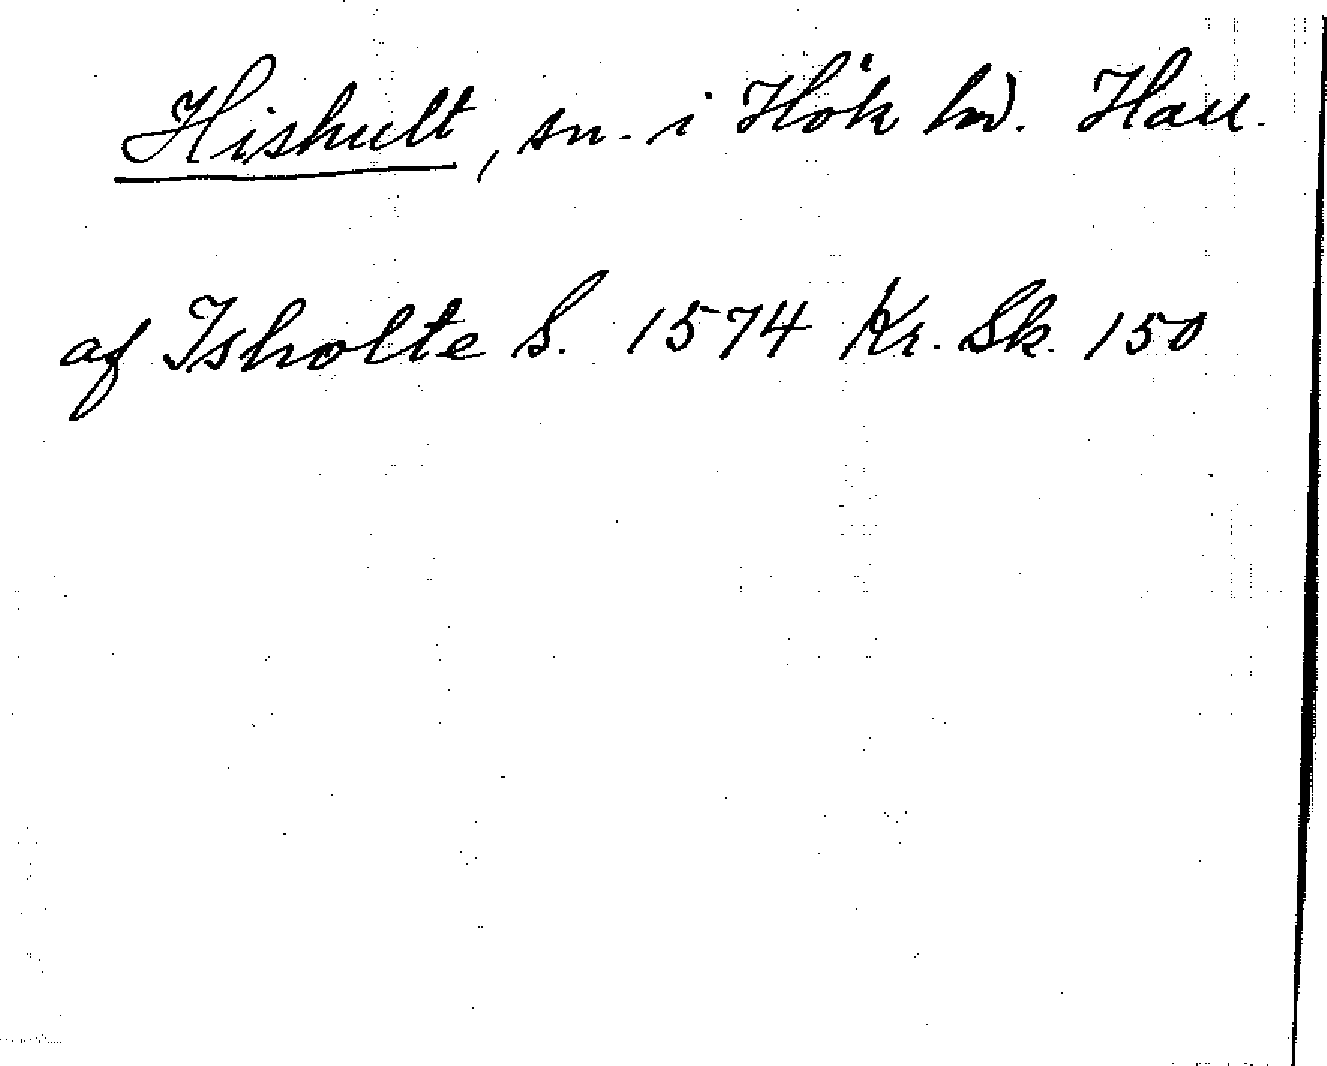 Hishult, sn. i Hök hd. Hall.
af Isholte S. 1574 Kr. Sk. 150